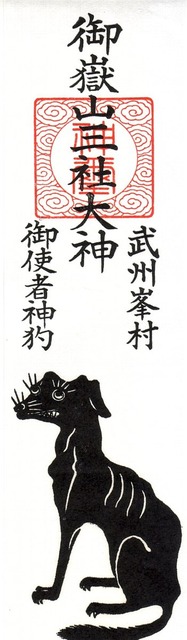 御嶽山三社大神
武州峯村
御使者神犳